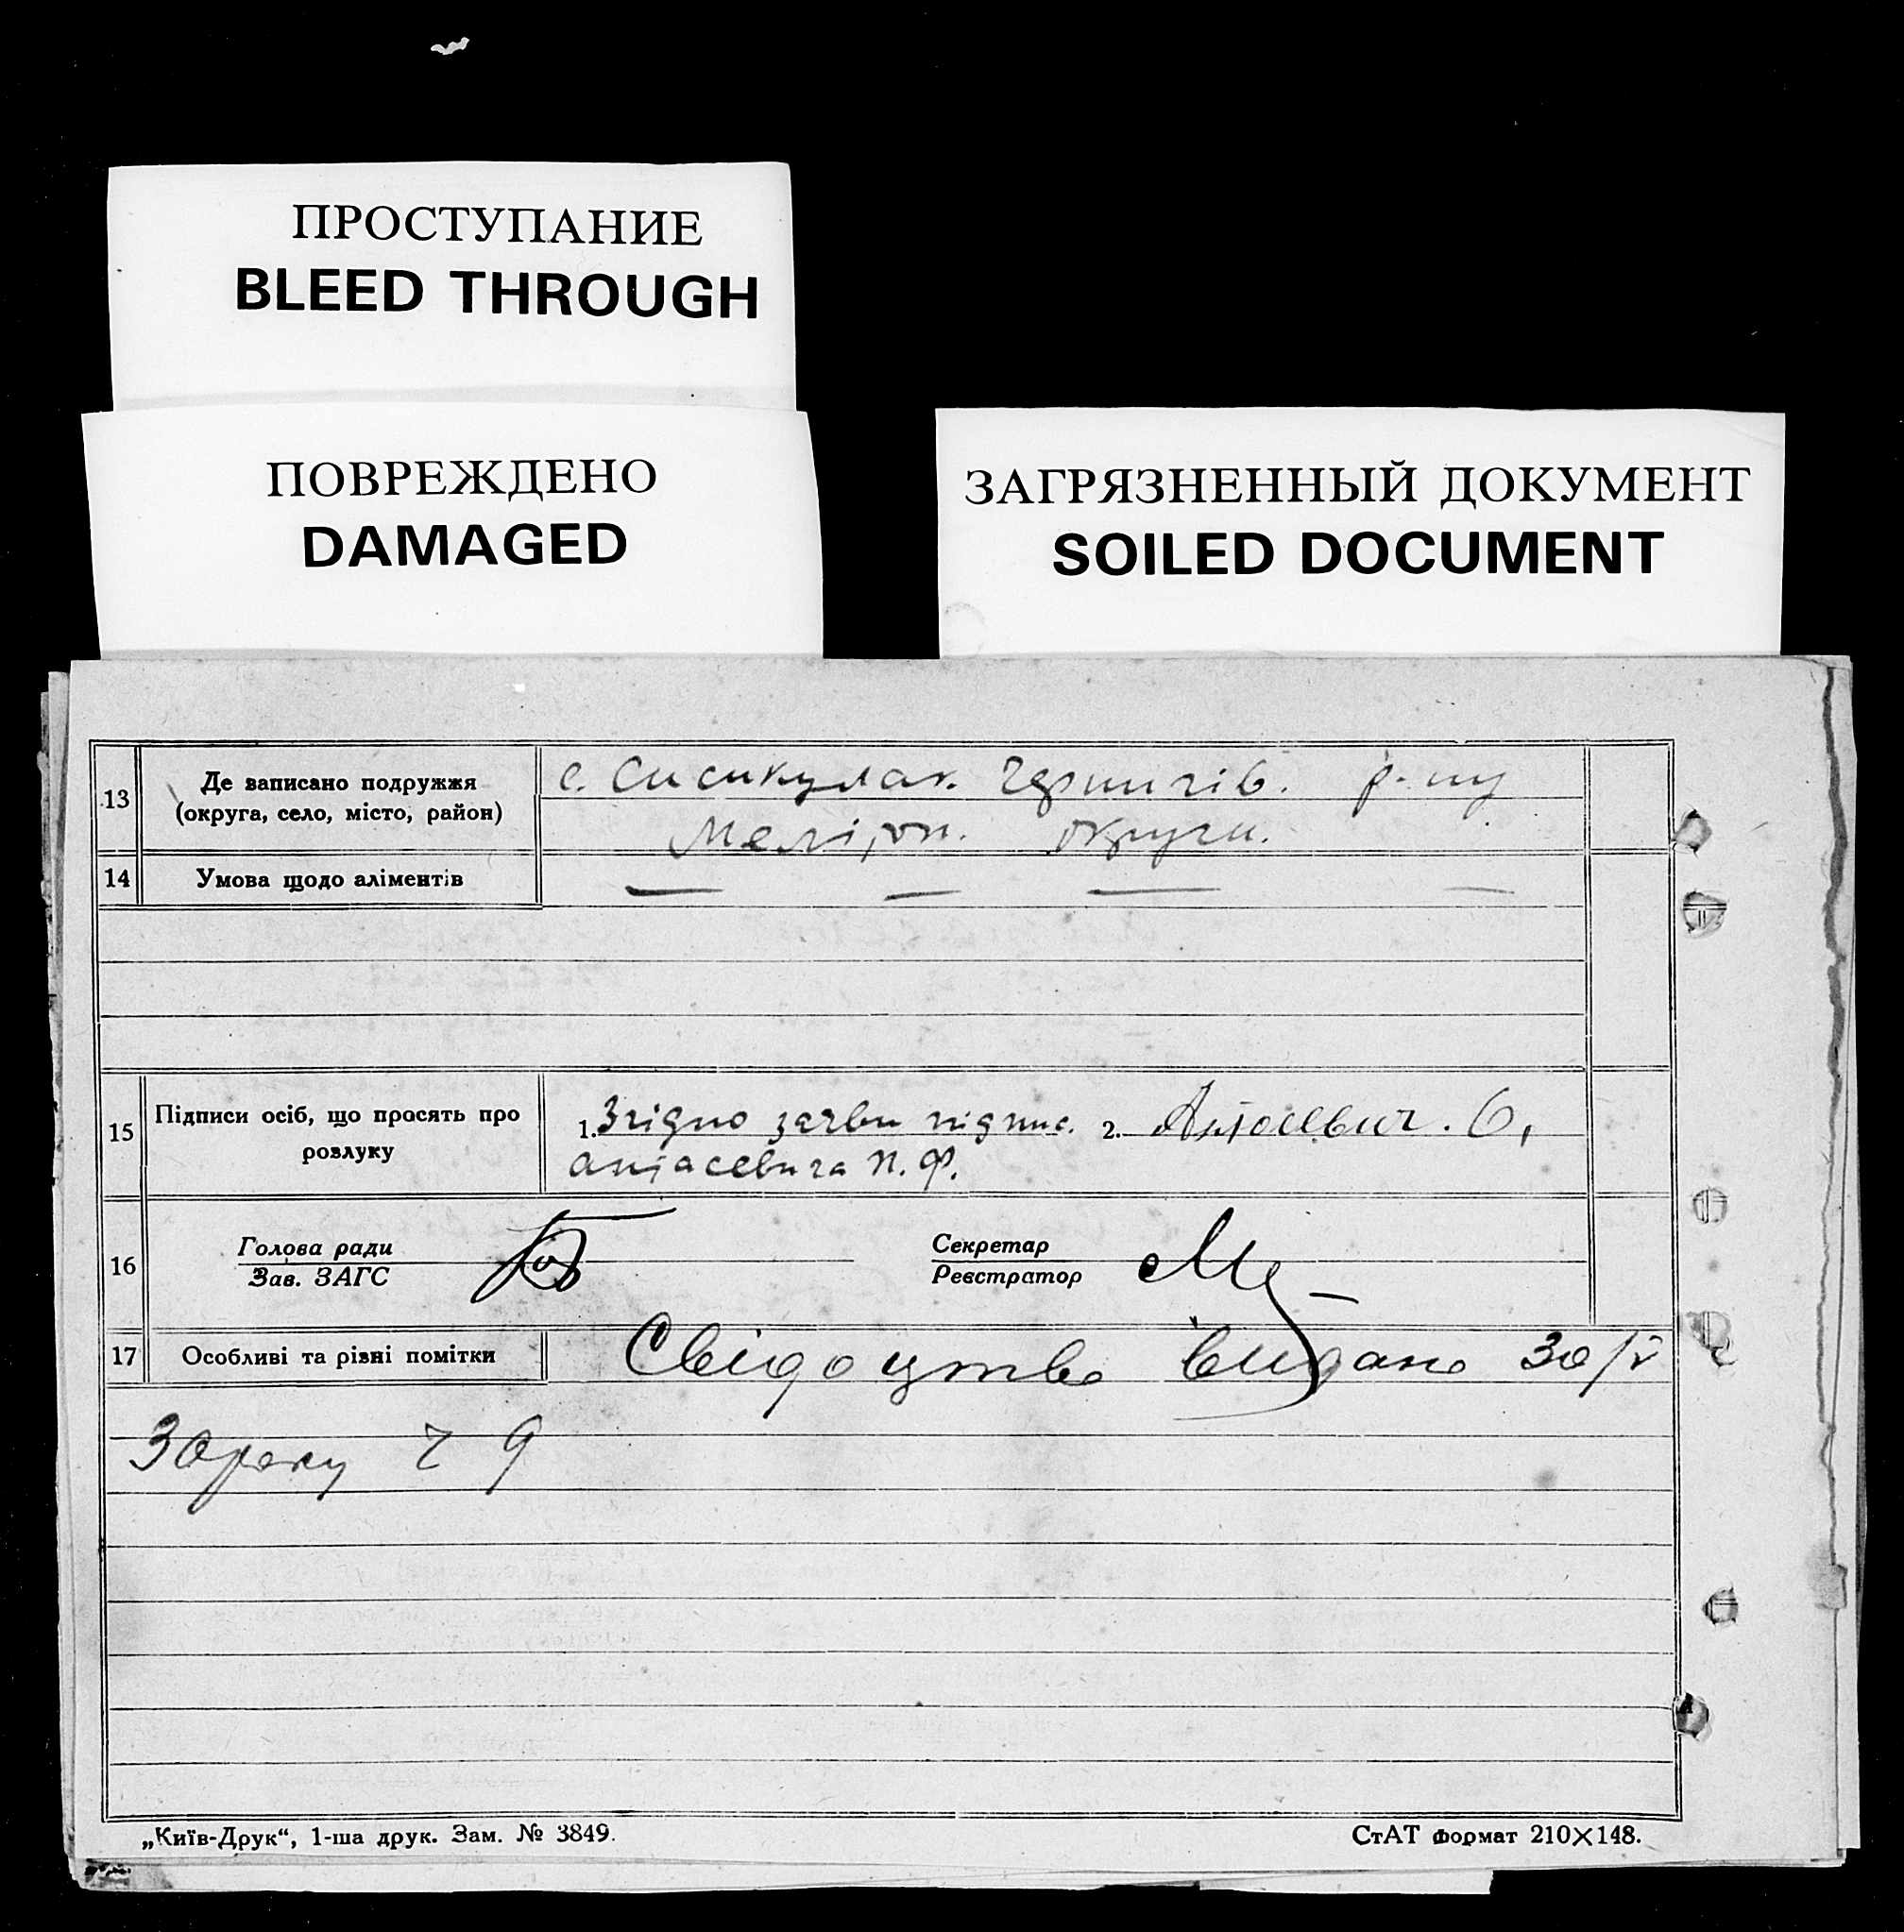 ПРОСТУПАНИЕ
BLEED THROUGH
ПОВРЕЖДЕНО
DAMAGED
ЗАГРЯЗНЕННЫЙ ДОКУМЕНТ
SOILED DOCUMENT
13
Де записано подружжя
(округа, село, місто, район)
с. Сисикулак. Чернигів. р-ну
Меліт. округи.
14
Умова щодо аліментів
— — — —
15
Підписи осіб, що просять про
розлуку
1. Згідно заяви підпис. 2.
Антасевича П. Ф.
16
Голова ради
Зав. ЗАГС
Секретар
Реєстратор
17
Особливі та різні помітки
Свідоцтво видано 30/V
30 року Ч 9
„Київ-Друк“, 1-ша друк. Зам. № 3849.
СтАТ формат 210×148.